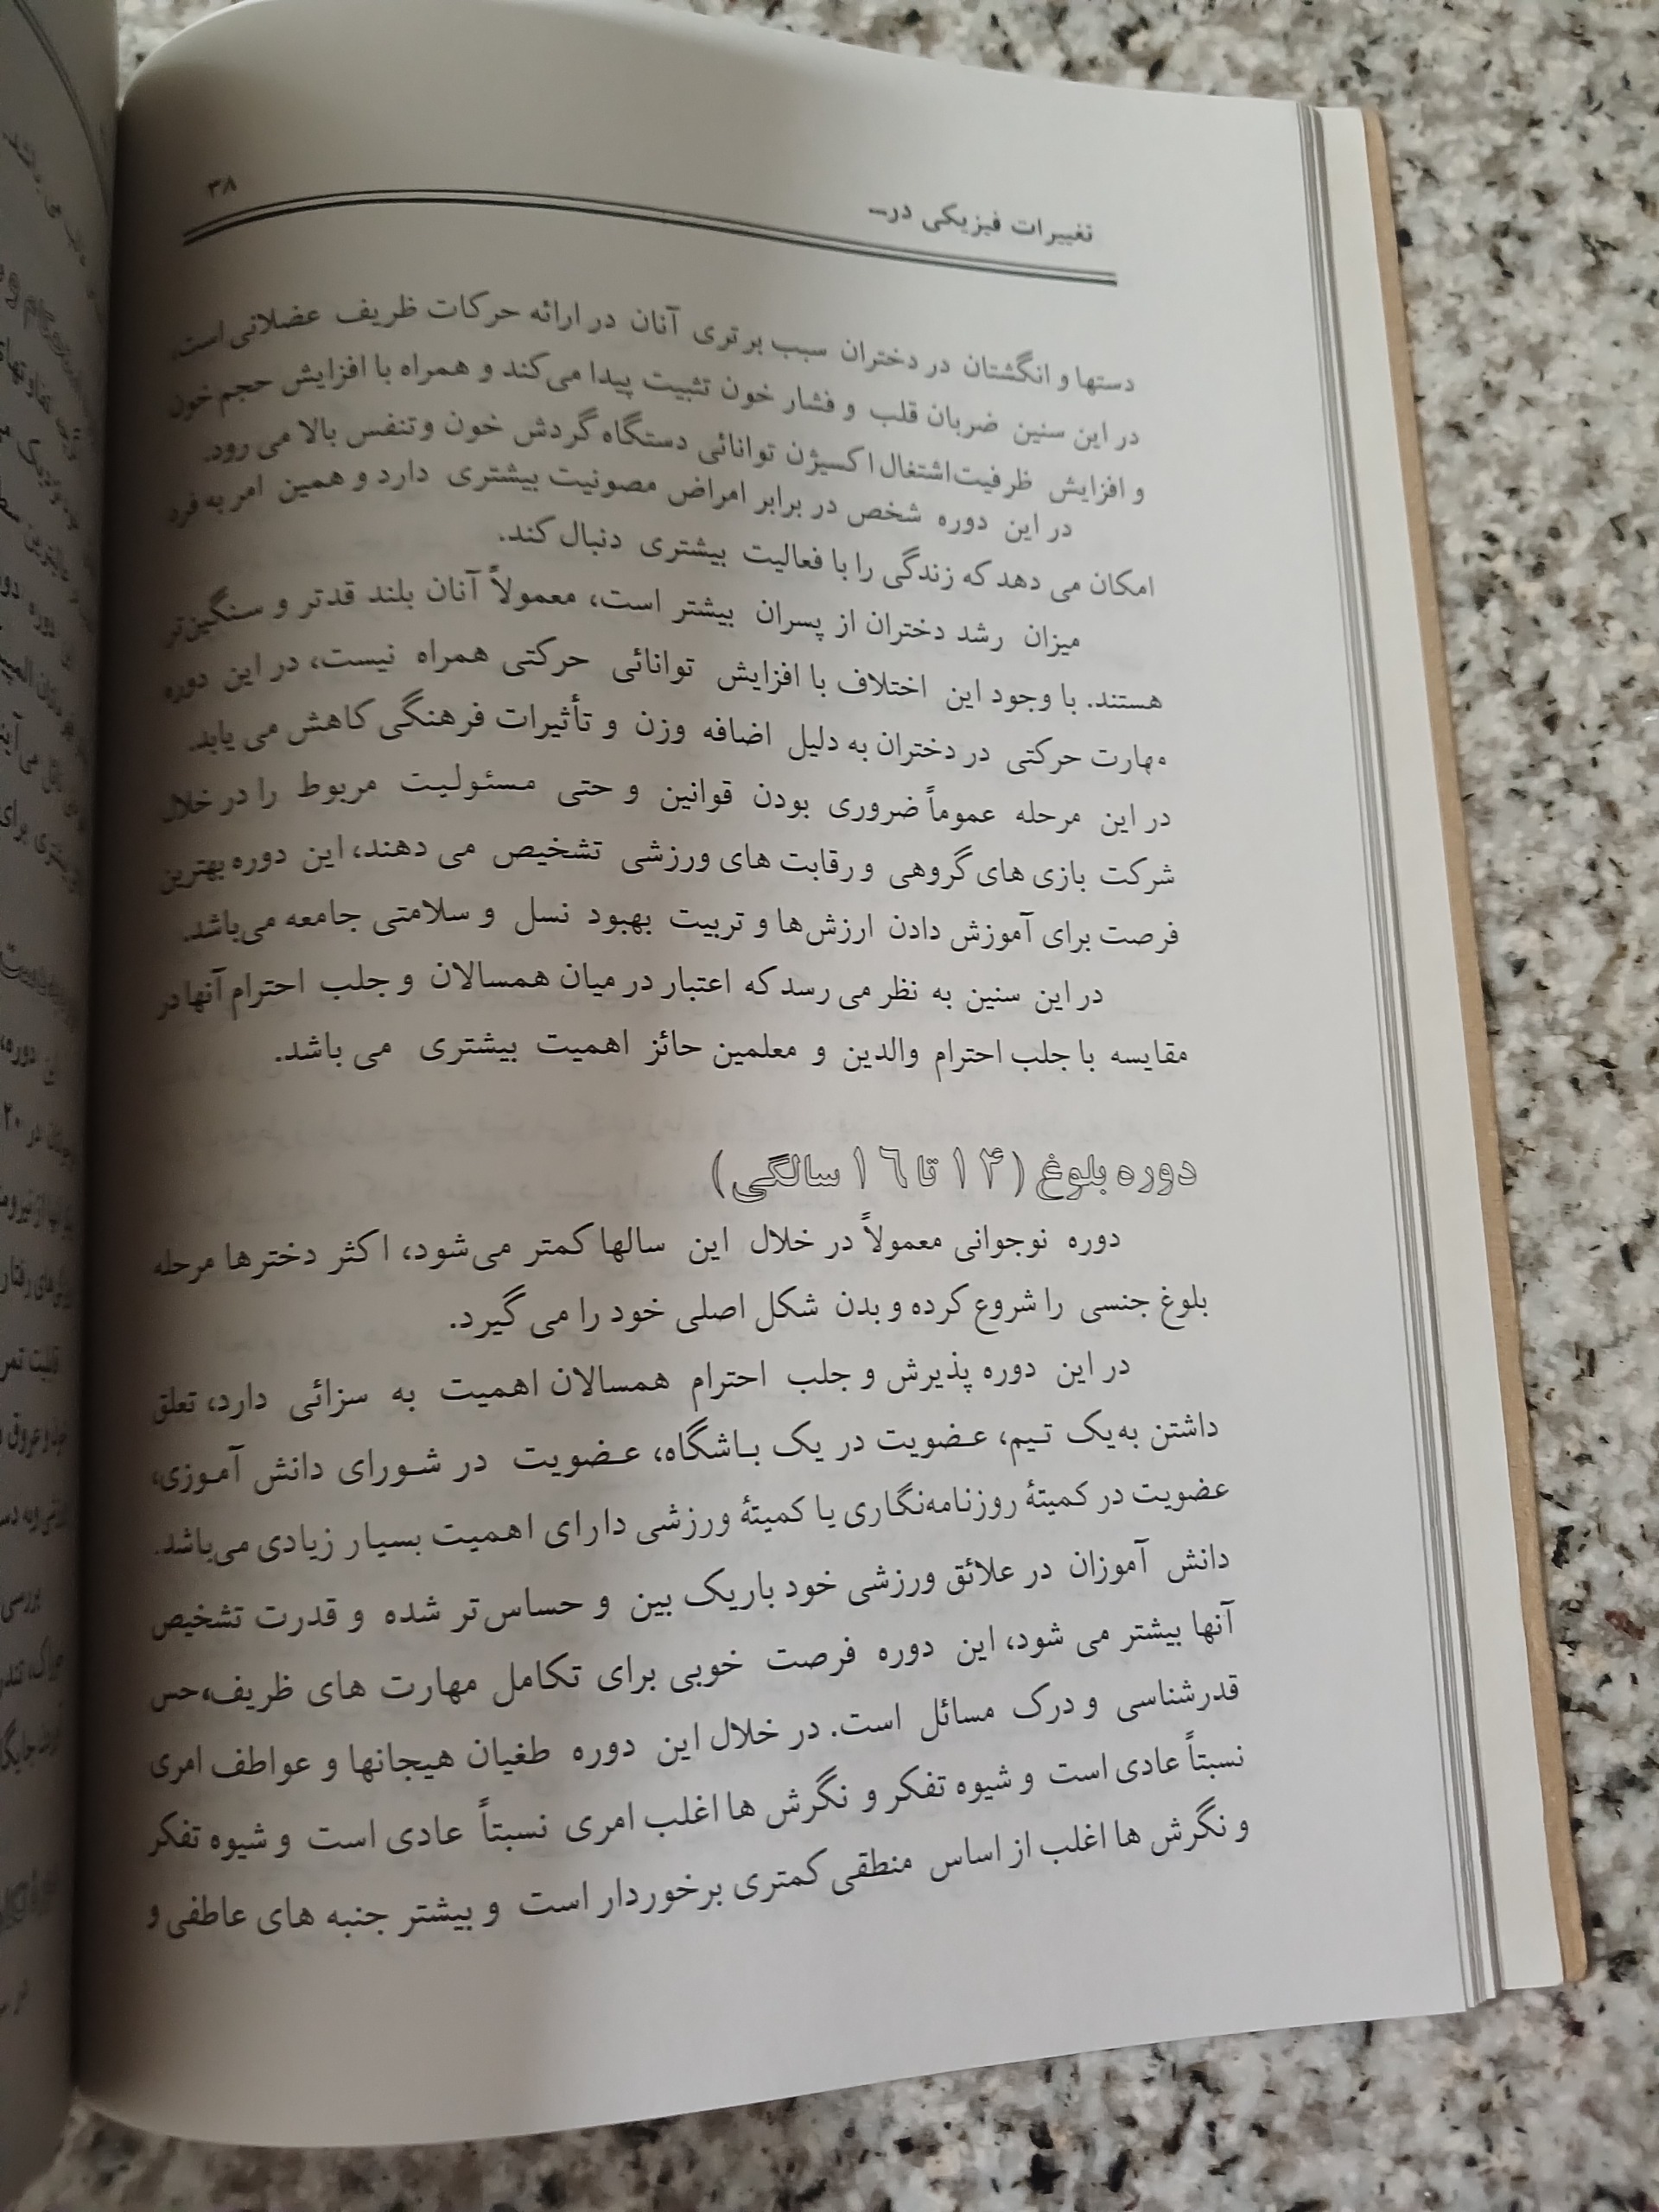 تغییرات فیزیکی در...
۳۸
دستها و انگشتان در دختران سبب برتری آنان در ارائه حرکات ظریف عضلانی است.
در این سنین ضربان قلب و فشار خون تثبیت پیدا می‌کند و همراه با افزایش حجم خون
و افزایش ظرفیت اشتغال اکسیژن توانائی دستگاه گردش خون و تنفس بالا می رود.
در این دوره شخص در برابر امراض مصونیت بیشتری دارد و همین امر به فرد
امکان می دهد که زندگی را با فعالیت بیشتری دنبال کند.
میزان رشد دختران از پسران بیشتر است، معمولاً آنان بلند قدتر و سنگین‌تر
هستند. با وجود این اختلاف با افزایش توانائی حرکتی همراه نیست، در این دوره
مهارت حرکتی در دختران به دلیل اضافه وزن و تأثیرات فرهنگی کاهش می یابد.
در این مرحله عموماً ضروری بودن قوانین و حتی مسئولیت مربوط را در خلال
شرکت بازی های گروهی و رقابت های ورزشی تشخیص می دهند، این دوره بهترین
فرصت برای آموزش دادن ارزش‌ها و تربیت بهبود نسل و سلامتی جامعه می‌باشد.
در این سنین به نظر می رسد که اعتبار در میان همسالان و جلب احترام آنها در
مقایسه با جلب احترام والدین و معلمین حائز اهمیت بیشتری می باشد.
دوره بلوغ (۱۴ تا ۱۶ سالگی)
دوره نوجوانی معمولاً در خلال این سالها کمتر می‌شود، اکثر دخترها مرحله
بلوغ جنسی را شروع کرده و بدن شکل اصلی خود را می گیرد.
در این دوره پذیرش و جلب احترام همسالان اهمیت به سزائی دارد، تعلق
داشتن به یک تیم، عضویت در یک باشگاه، عضویت در شورای دانش آموزی،
عضویت در کمیتۀ روزنامه‌نگاری یا کمیتۀ ورزشی دارای اهمیت بسیار زیادی می‌باشد.
دانش آموزان در علائق ورزشی خود باریک بین و حساس‌تر شده و قدرت تشخیص
آنها بیشتر می شود، این دوره فرصت خوبی برای تکامل مهارت های ظریف، حس
قدرشناسی و درک مسائل است. در خلال این دوره طغیان هیجانها و عواطف امری
نسبتاً عادی است و شیوه تفکر و نگرش ها اغلب امری نسبتاً عادی است و شیوه تفکر
و نگرش ها اغلب از اساس منطقی کمتری برخوردار است و بیشتر جنبه های عاطفی و